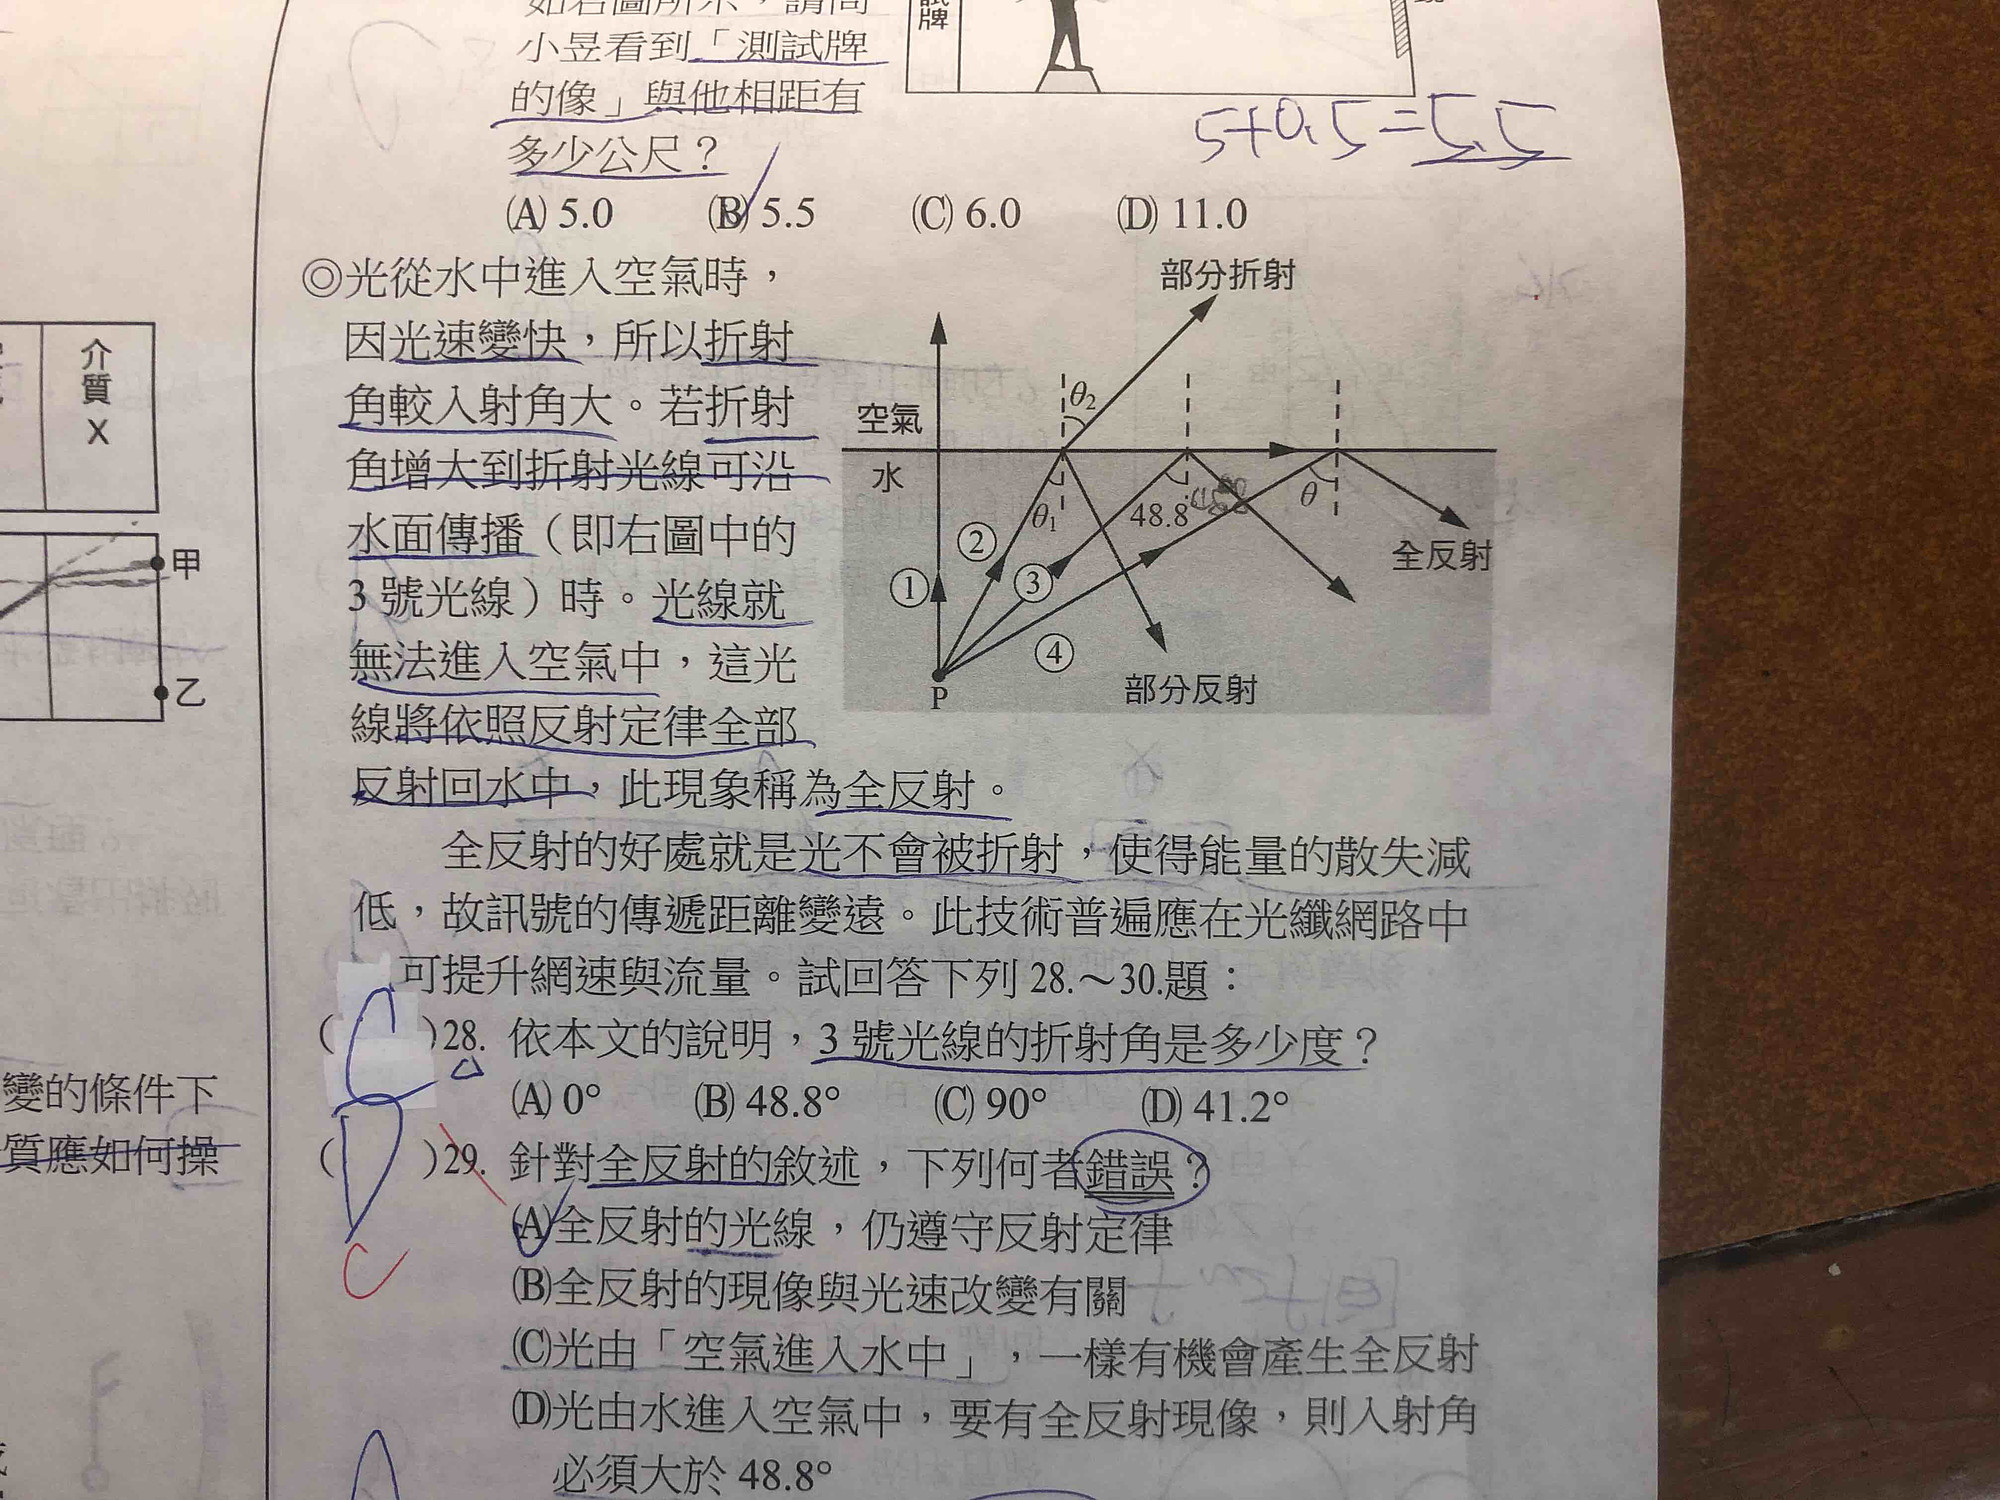 小昱看到「測試牌
的像」與他相距有
多少公尺？
試牌
5+0.5=5.5
(A) 5.0 (B) 5.5 (C) 6.0 (D) 11.0
◎光從水中進入空氣時，
因光速變快，所以折射
角較入射角大。若折射
角增大到折射光線可沿
水面傳播（即右圖中的
3 號光線）時。光線就
無法進入空氣中，這光
線將依照反射定律全部
反射回水中，此現象稱為全反射。
部分折射
空氣
水
θ2
θ1
48.8
θ
①
②
③
④
P
全反射
部分反射
全反射的好處就是光不會被折射，使得能量的散失減
低，故訊號的傳遞距離變遠。此技術普遍應在光纖網路中
可提升網速與流量。試回答下列 28.～30.題：
( C )28. 依本文的說明，3 號光線的折射角是多少度？
(A) 0° (B) 48.8° (C) 90° (D) 41.2°
( D )29. 針對全反射的敘述，下列何者錯誤？
C
(A)全反射的光線，仍遵守反射定律
(B)全反射的現像與光速改變有關
(C)光由「空氣進入水中」，一樣有機會產生全反射
(D)光由水進入空氣中，要有全反射現像，則入射角
必須大於 48.8°
介質X
甲
乙
變的條件下
質應如何操